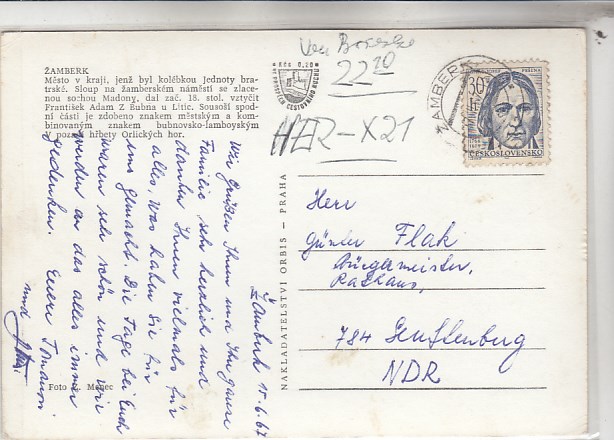 ŽAMBERK
Město v kraji, jenž byl kolébkou Jednoty bra-
trské. Sloup na žamberském náměstí se zlace-
nou sochou Madony, dal zač. 18. stol. vztyčit
František Adam Z Bubna u Litic. Sousoší spod-
ní části je zdobeno znakem městským a kom-
binovaným znakem bubnovsko-lamboyským
V pozadí hřbety Orlických hor.
Kčs 0,20
22 20
HER-X21
ŽAMBERK
30 h
ČESKOSLOVENSKO
NAKLADATELSTVÍ ORBIS — PRAHA
Žamberk 15.6.67
Wir grüßen Ihnen und Ihr ganze
Familie sehr herzlich und
danken Ihnen vielmals für
alles, was haben Sie für
uns gemacht. Die Tage bei Euch
waren sehr schön und wir
werden an das alles immer
gedenken. Euere
und
Herr
Günter Flak
Bürgermeister,
Rathaus,
784 Senftenberg
NDR
Foto